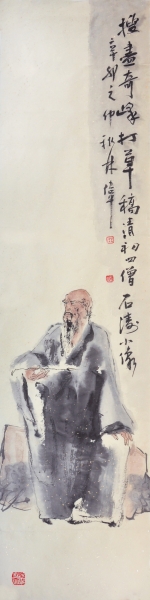 搜盡奇峰打草稿清初四僧石濤小像
辛卯之仲秋林墉畫